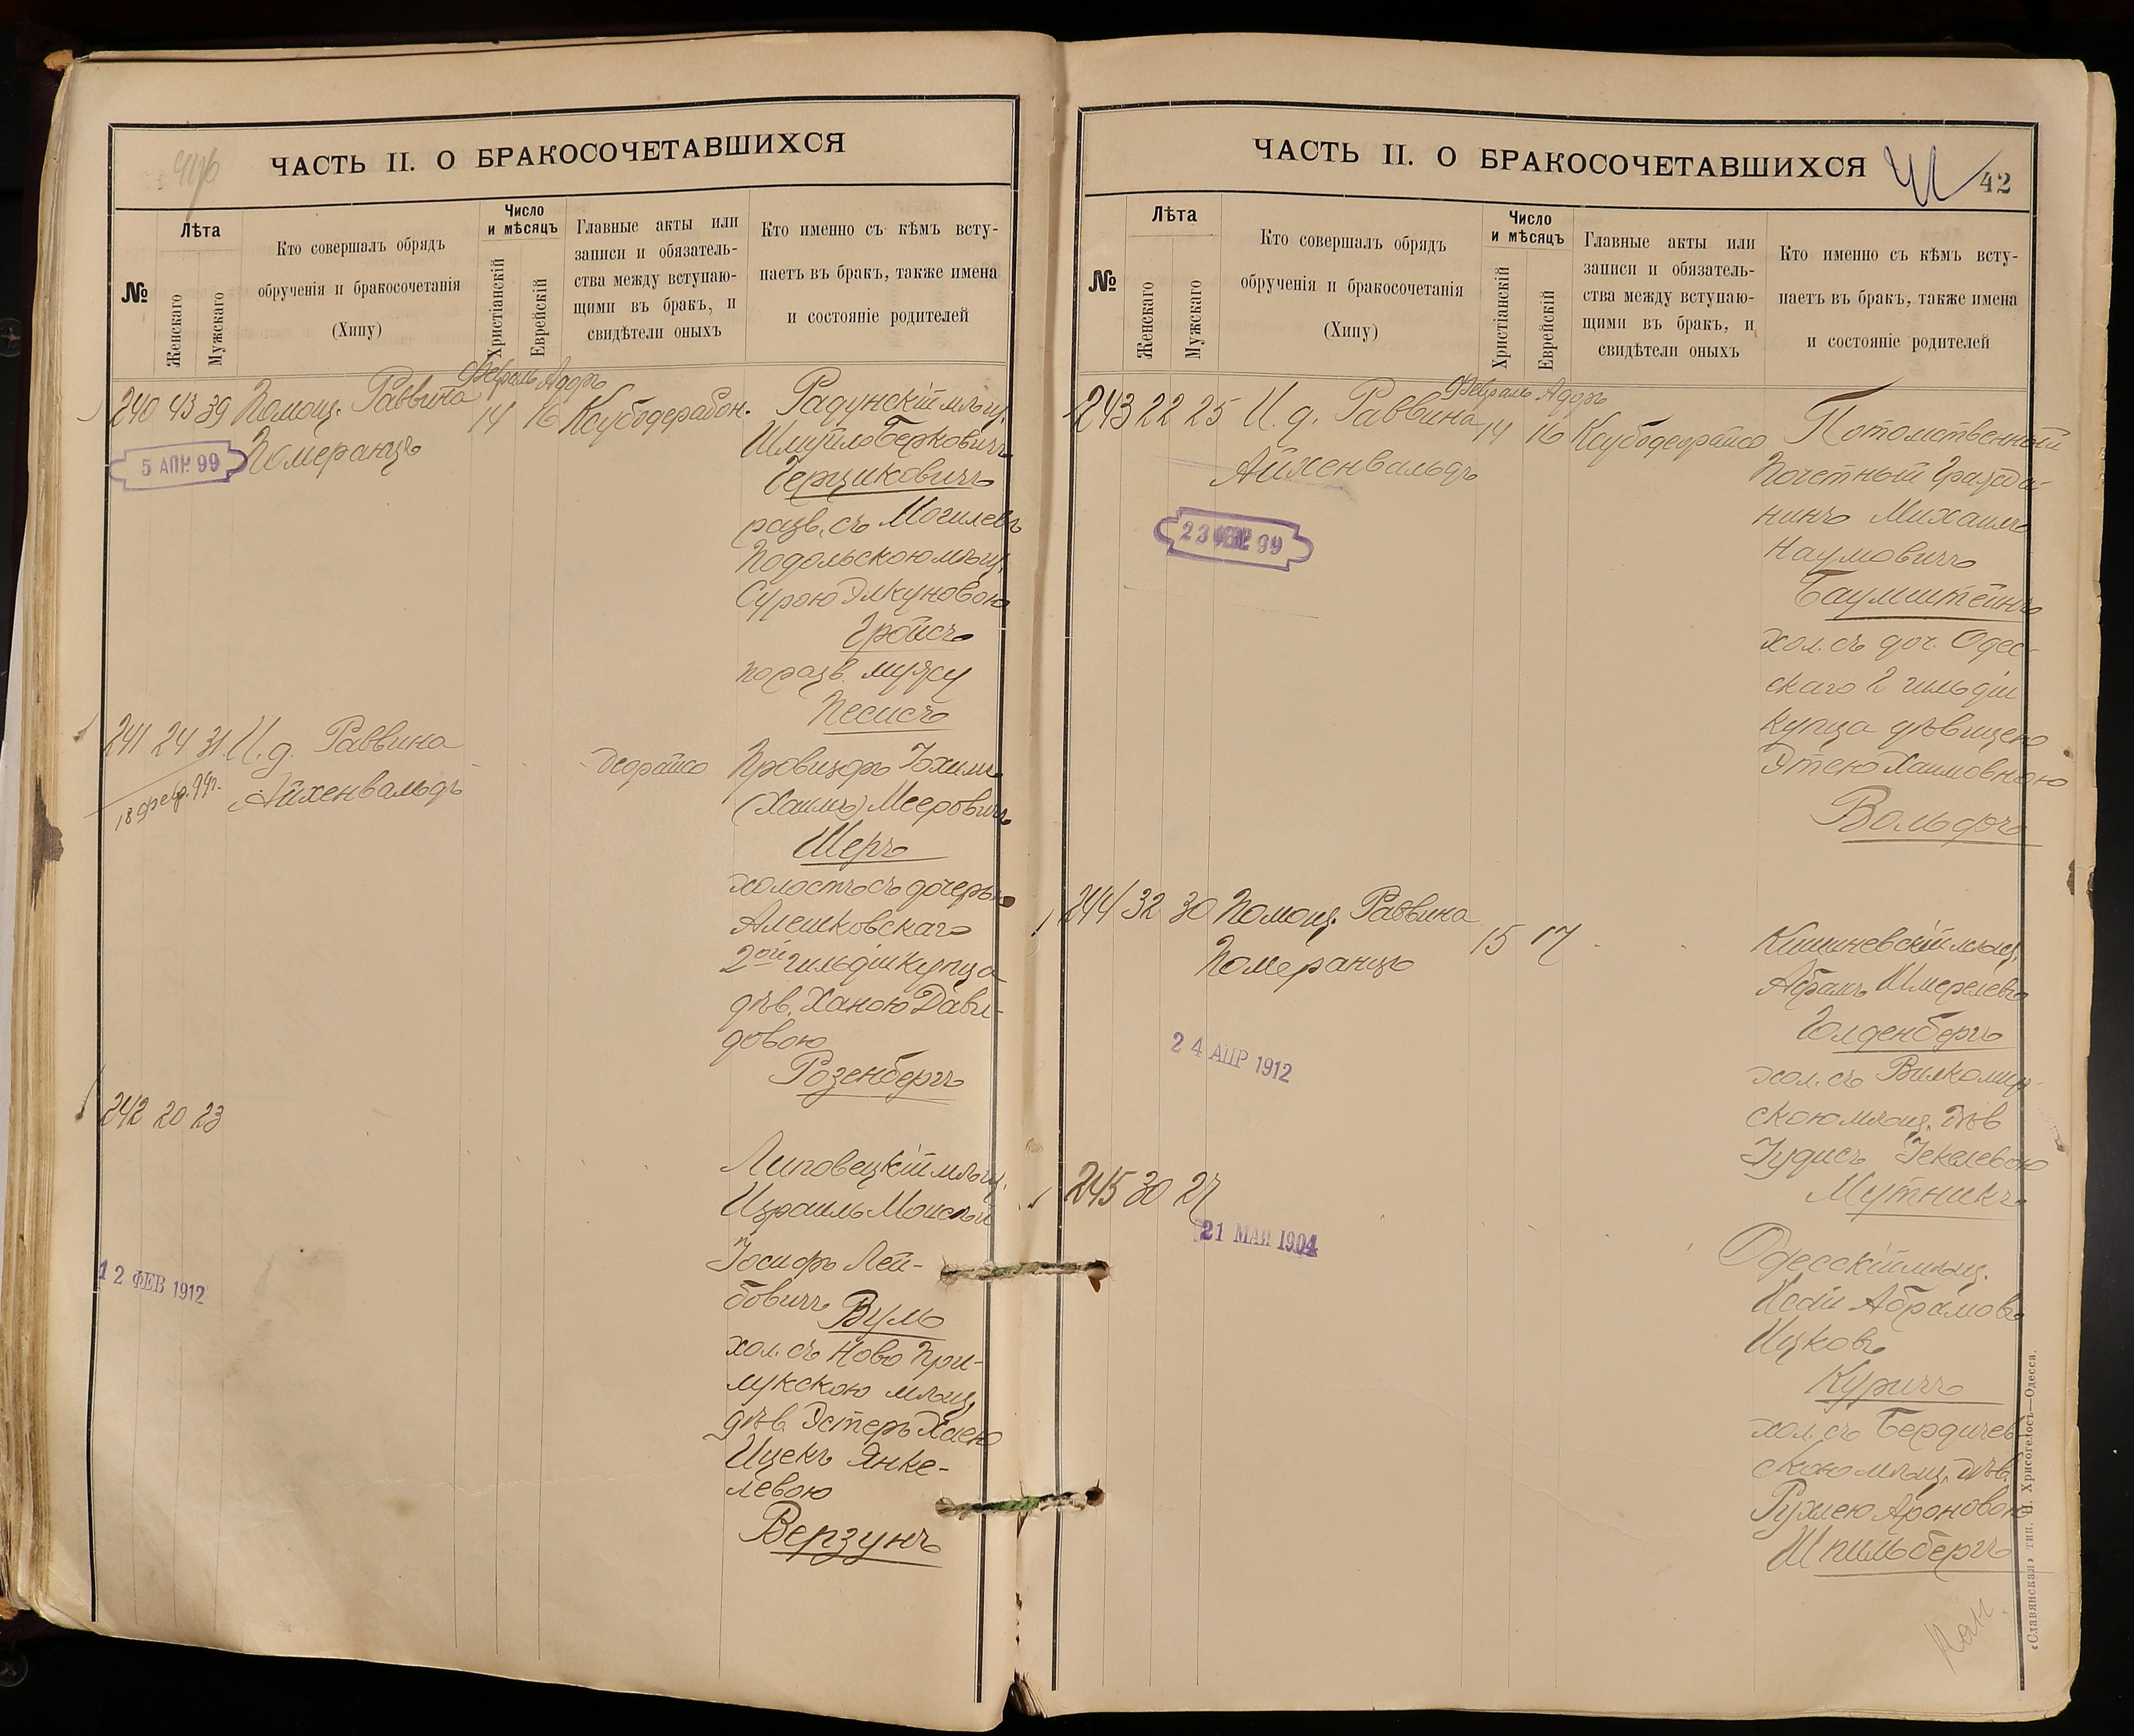 ЧАСТЬ II. О БРАКОСОЧЕТАВШИХСЯ
№
Лѣта
Женскаго
Мужскаго
Кто совершалъ обрядъ
обрученія и бракосочетанія
(Хипу)
Число
и мѣсяцъ
Христіанскій
Еврейскій
Главные акты или
записи и обязатель-
ства между вступаю-
щими въ бракъ, и
свидѣтели оныхъ
Кто именно съ кѣмъ всту-
паетъ въ бракъ, также имена
и состояніе родителей
Февраль Адаръ
240 43 39 Помощ. Раввина 14 16 Радунскій мѣщ.
5 АПР. 99 Померанцъ
Шмуйло Берковичъ
Герциковичъ
разв. съ Могилевъ
Подольскою мѣщ.
Сурою Элкуновою
Гройсъ
по разв. мужу
Песисъ
241 24 31 И. д. Раввина
Айхенвальдъ
18 февр. 99г.
Деорайсо
Провизоръ Іохимъ
(Хаимъ) Мееровичъ
Шеръ
холостъ съ дочерью
Алешковскаго
2ой гильдіи купца
дѣв. Ханою Дави-
довою
Розенбергъ
242 20 23
Липовецкій мѣщ.
Израиль Моисей
Іосифъ Лей-
бовичъ Вуль
12 ФЕВ 1912
хол. съ Ново При-
лукскою мѣщ.
дѣв. Эстеръ Хаею
Ицекъ Янке-
левою
Верзунъ
ЧАСТЬ II. О БРАКОСОЧЕТАВШИХСЯ
42
№
Лѣта
Женскаго
Мужскаго
Кто совершалъ обрядъ
обрученія и бракосочетанія
(Хипу)
Число
и мѣсяцъ
Христіанскій
Еврейскій
Главные акты или
записи и обязатель-
ства между вступаю-
щими въ бракъ, и
свидѣтели оныхъ
Кто именно съ кѣмъ всту-
паетъ въ бракъ, также имена
и состояніе родителей
Февраль Адаръ
243 22 25 И. д. Раввина 14 16 Ксубодеорайсо Потомственный
Айхенвальдъ
23 ФЕВР. 99
Почетный Гражда-
нинъ Михаилъ
Наумовичъ
Баумштейнъ
хол. съ доч. Одес-
скаго 2 гильдіи
купца дѣвицею
Этею Хаимовною
Вольфъ
244 32 30 Помощ. Раввина 15 17
Померанцъ
24 АПР 1912
Кишиневскій мѣщ.
Абрамъ Шмерелевъ
Голденбергъ
хол. съ Вилкомир-
скою мѣщ. дѣв
Іудисъ Іекелевою
Мутникъ
245 30 27
21 МАЙ 1904
Одесскій мѣщ.
Исай Абрамовъ
Ицковъ
Куричъ
хол. съ Бердичев
скою мѣщ. дѣв.
Рухлею Ароновою
Шпильбергъ
«Славянская» тип. Н. Хрисогелосъ—Одесса.